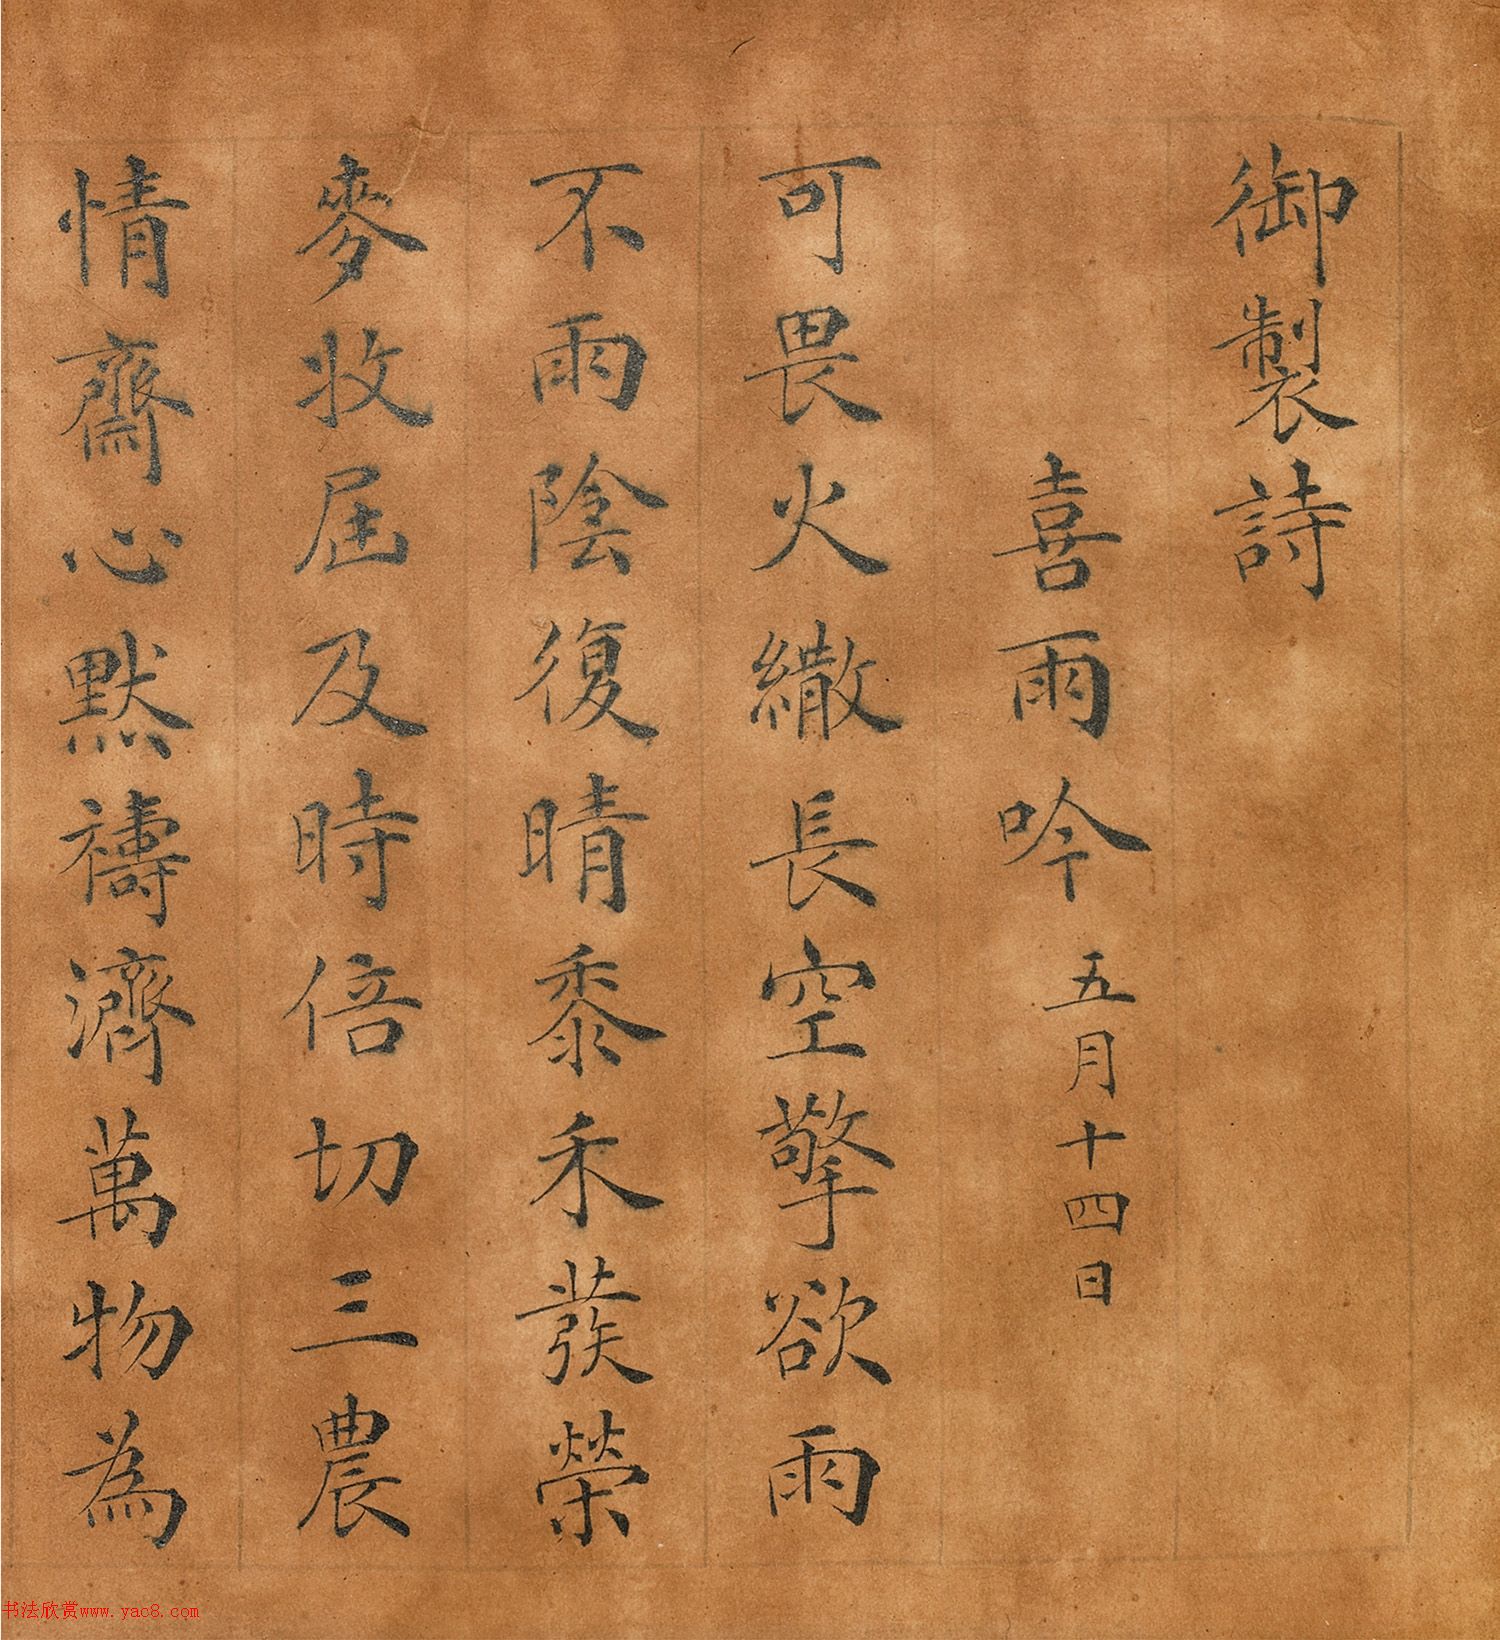 御製詩
喜雨吟 五月十四日
可畏火繖長空擎欲雨
不雨陰復晴黍禾發榮
麥收届及時倍切三農
情齋心默禱濟萬物為
书法欣赏www.yac8.com